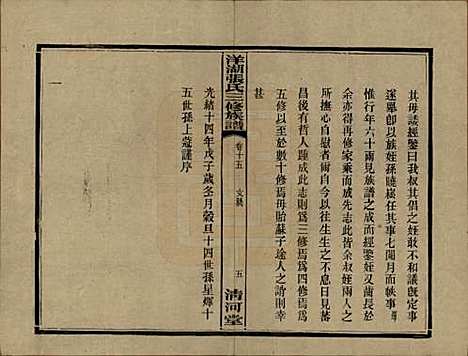 其毋諼經鑒曰我叔其倡之姪敢不和議旣定事
遂舉卽以族姪孫賤彬任其事七閱月而帙事
惟行年六十兩見族譜之成而經鑒姪又齒長於
余亦喜得一修家乘而成先志此皆余叔姪兩人之
所差堪自慰者爾至今以往生生之不息日見蕃
昌後有哲人踵成此志則爲三修焉爲四修焉爲
五修以至於數十修焉毋貽蘇子途人之誚則幸
甚
光緒十四年戊子歲冬月穀旦十四世孫星煇十
五世孫上蔻謹序
洋湖張氏三修族譜
卷十五
文藝
五
清河堂